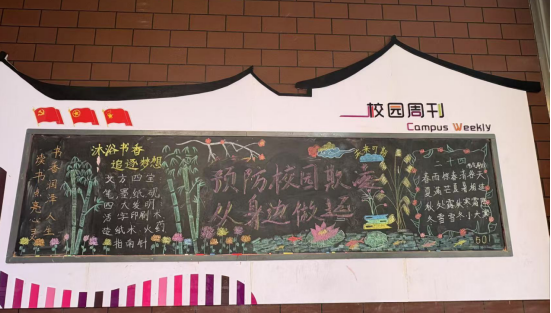 校园周刊
Campus Weekly
书香润泽人生
读书点亮
沐浴书香
追逐梦想
文房四宝
笔墨纸砚
四大发明
活字印刷术
造纸术 火药
指南针
预防校园欺凌
从身边做起
二十四
节气歌
春雨惊春清谷天
夏满芒夏暑相连
秋处露秋寒霜降
冬雪雪冬小大寒
501